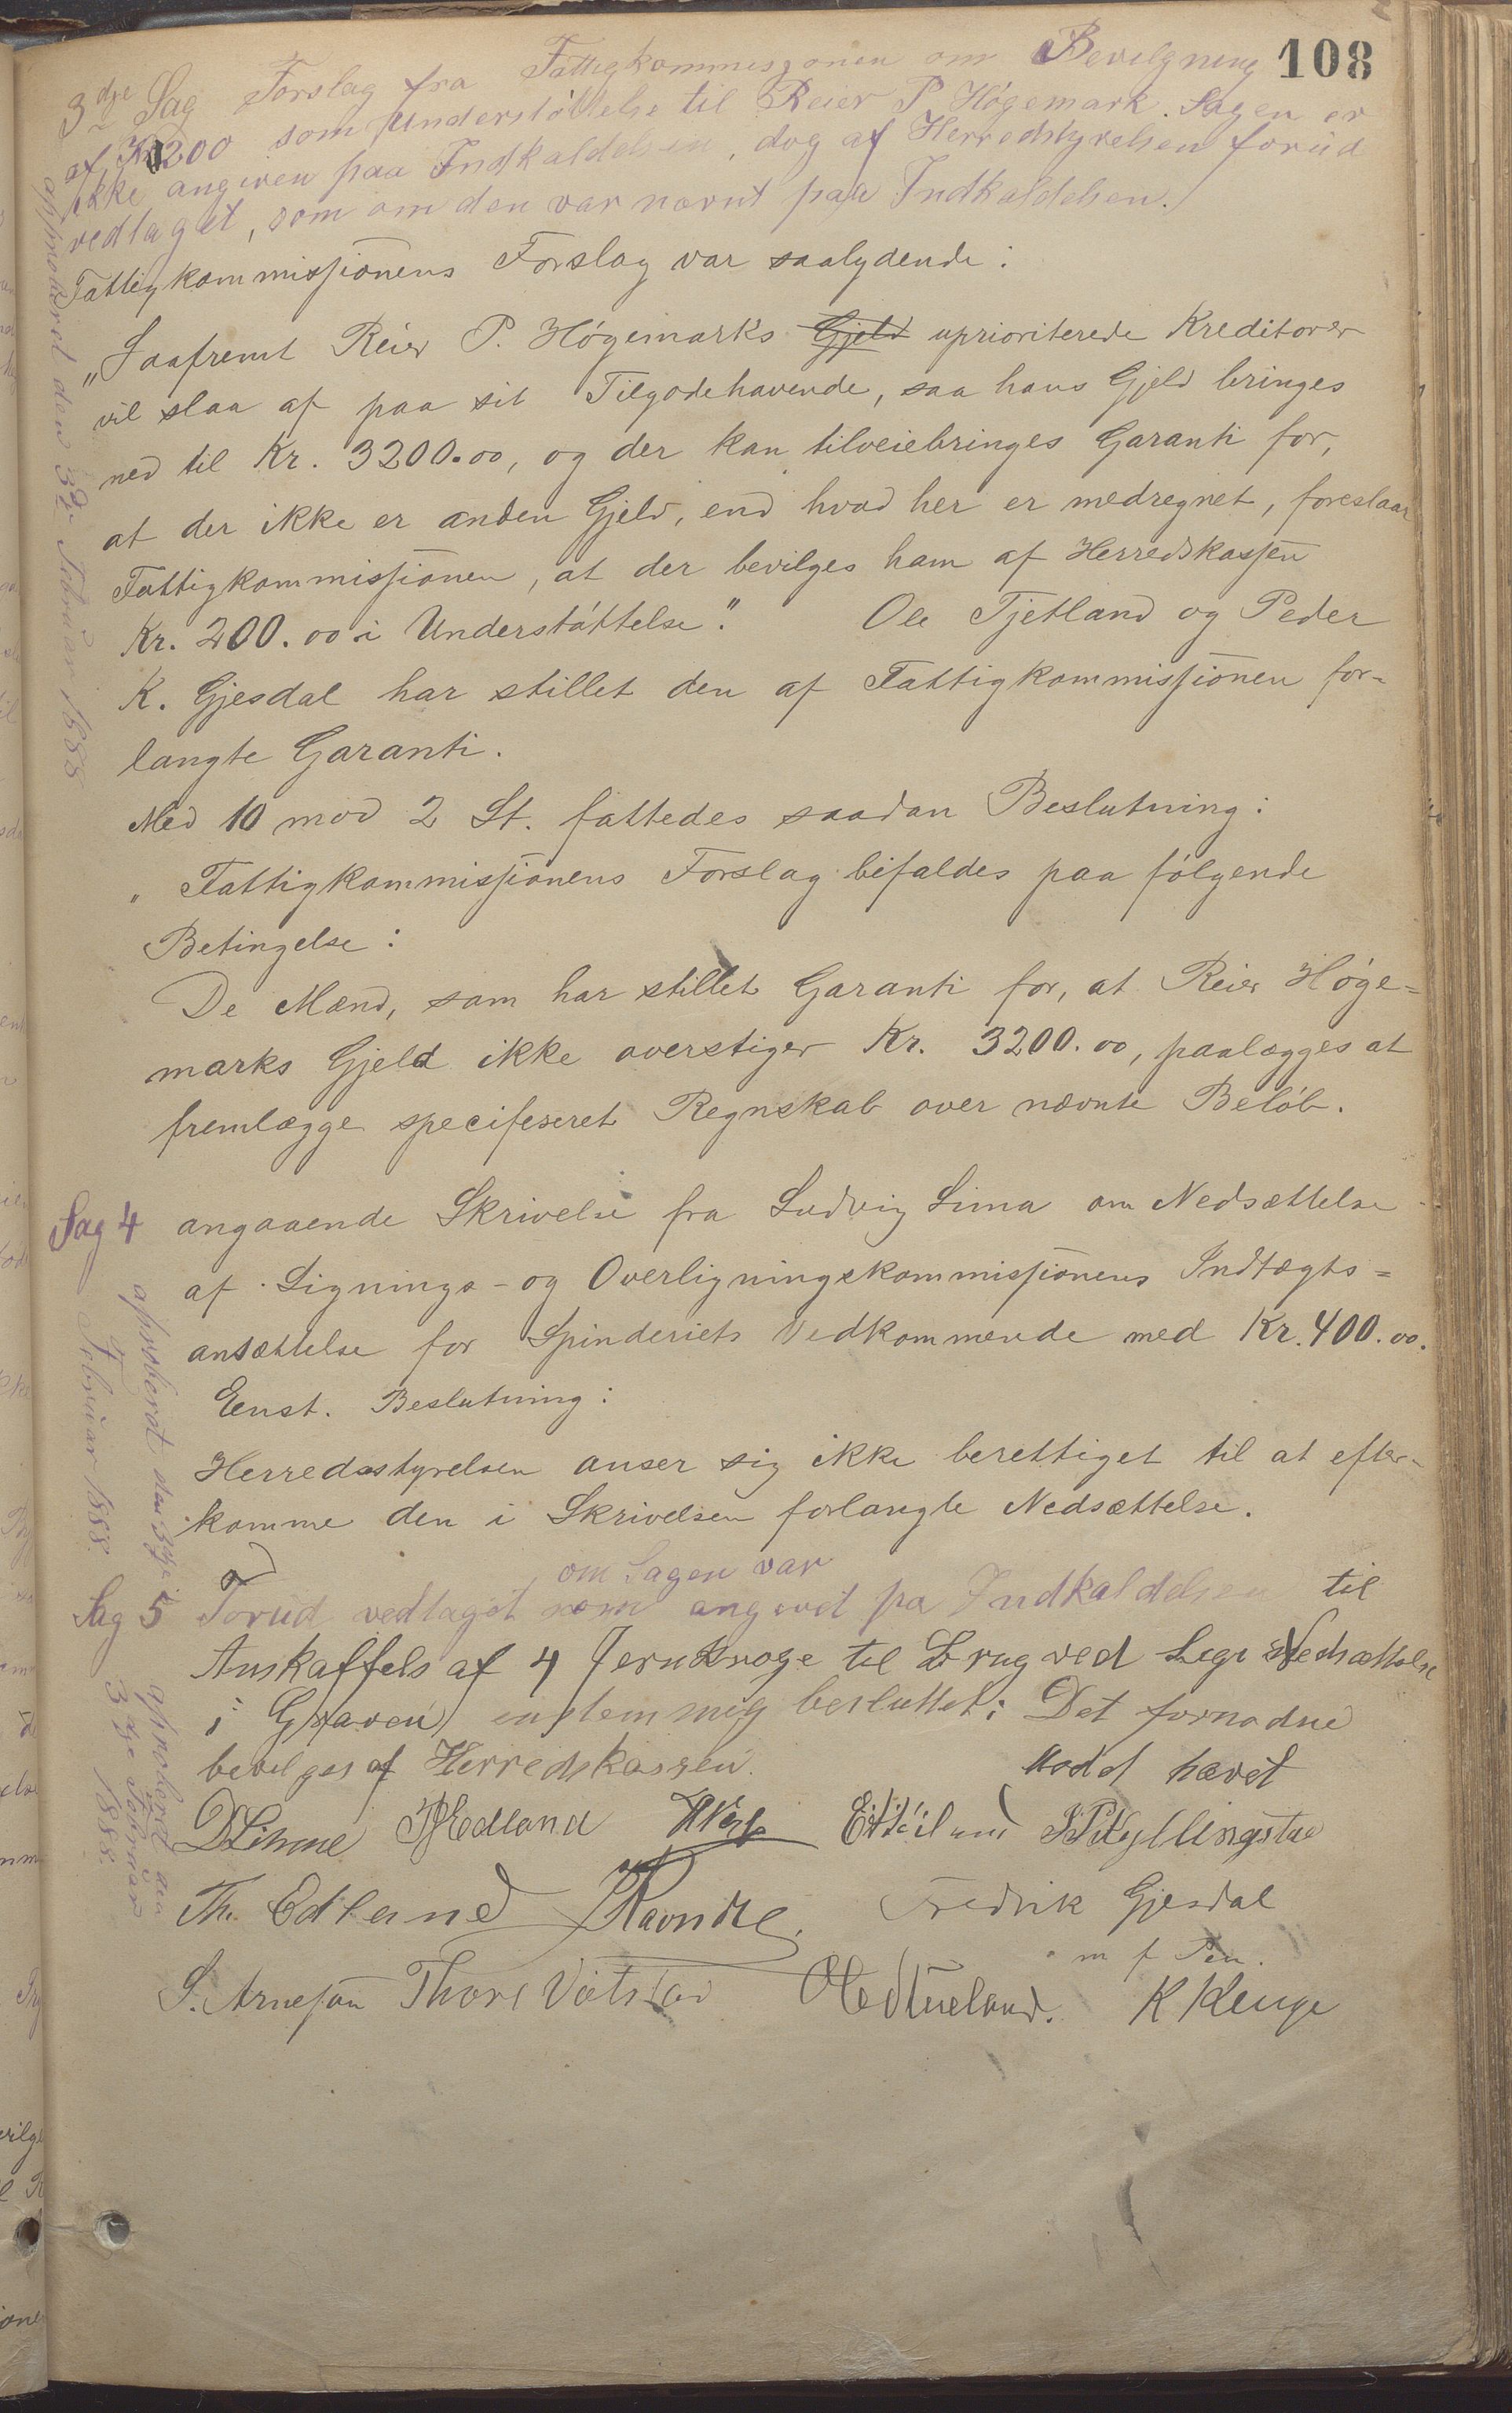 108
3dje Sag Forslag fra Fattigkommissjonen om Bevilgning
af Kr 200 som Understøttelse til Reier P. Høgemark. Sagen er
ikke angiven paa Indkaldelsen, dog af Herredstyrelsen forud
vedtaget, som om den var nævnt paa Indkaldelsen.
Fattigkommissionens Forslag var saalydende:
"Saafremt Reier P. Høgemarks Gjeld uprioriterede Kreditorer
vil slaa af paa sit Tilgodehavende, saa hans Gjeld bringes
ned til Kr. 3200.00, og der kan tilveiebringes Garanti for,
at der ikke er anden Gjeld, end hvad her er medregnet, foreslaar
Fattigkommissionen, at der bevilges ham af Herredskassen
Kr. 200.00 i Understøttelse." Ole Tjetland og Peder
K. Gjesdal har stillet den af Fattigkommissionen for=
langte Garanti.
Med 10 mod 2 St. fattedes saadan Beslutning:
"Fattigkommissionens Forslag bifaldes paa følgende
Betingelse:
De Mænd, som har stillet Garanti for, at Reier Høge=
marks Gjeld ikke overstiger Kr. 3200.00, paalægges at
fremlægge specifeseret Regnskab over nævnte Beløb.
approberet den 3dje Februar 1888
Sag 4 angaaende Skrivelse fra Ludvig Lima om Nedsættelse
af Lignings- og Overligningskommissionens Indtægts=
ansættelse for Spinderiets Vedkommende med Kr. 400.00.
Enst. Beslutning:
Herredsstyrelsen anser sig ikke berettiget til at efter-
komme den i Skrivelsen forlangte Nedsættelse.
approberet den 3dje
Februar 1888.
om Sagen var
Sag 5 Forud vedtaget som angivet pa Indkaldelsen til
Anskaffels af 4 Jernkroge til Brug ved Lige Nedsættelse
i Graven, enstemmig besluttet: Det fornødne
bevilges af Herredskassen. Mødet hævet
approberet den
3dje Februar
1888.
D Limme Edland E
Th. Edland Ravndal Fredrik Gjesdal
m f Pen.
S. Arnesen Thore K Kluge